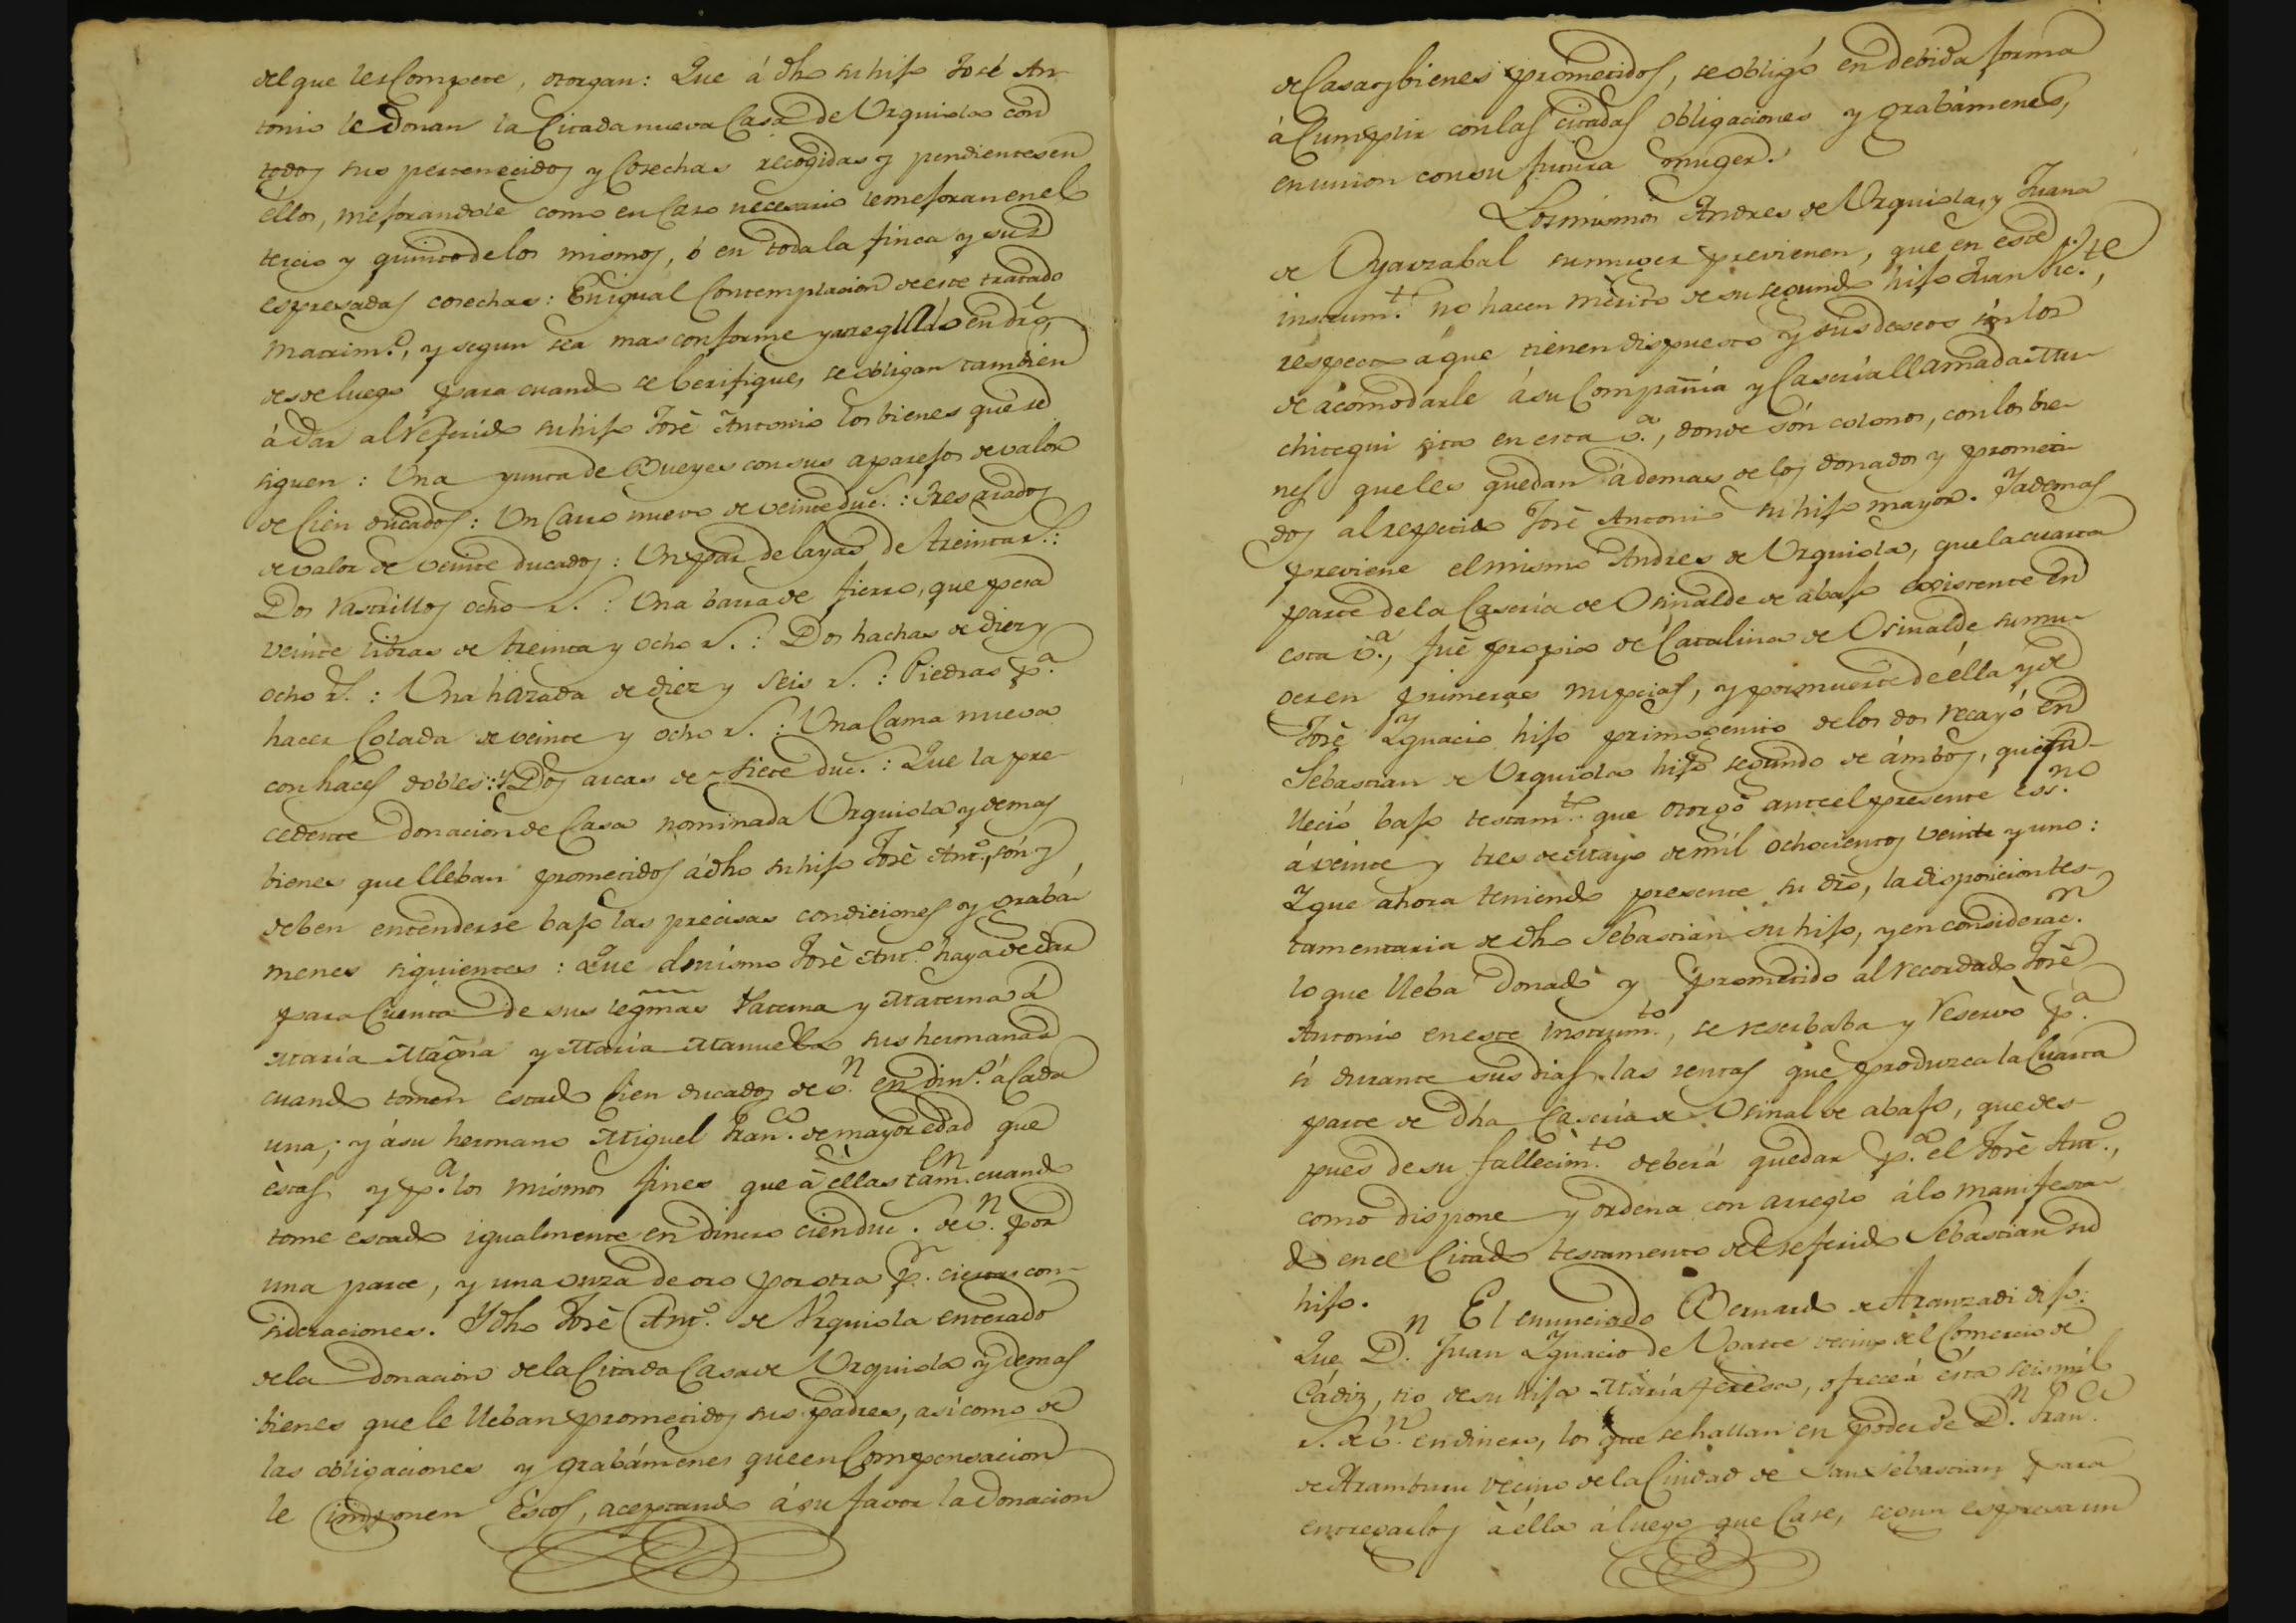 del que les Compete, otorgan: Que á dho su hijo José An-
tonio le Donan la Citada nueva Casa de Urquiola con
todos sus pertenecidos y Cosechas recogidas y pendientes en
éllos, mejorandole como en Caso necesario le mejoran en el
tercio y quinto de los mismos, ó en toda la finca y sus
espresadas cosechas: En igual Contemplacion de este tratado
matrim.º, y segun sea mas conforme y arreglado en dro,
desde luego para cuando se berifique, se obligan tambien
á dar al referido su hijo José Antonio los bienes que se
siguen: Una yunta de Bueyes con sus aparejos de valor
de Cien ducados: Un Carro nuevo de veinte duc.s: Tres arados
de valor de veinte ducados: Un par de layas de treinta r.s:
Dos rastrillos ocho r.s: Una barra de fierro, que pesa
veinte libras de treinta y ocho r.s: Dos hachas de diez y
ocho r.s: Una hazada de diez y seis r.s: Piedras p.ª
hacer Colada de veinte y ocho r.s: Una Cama nueva
con haces dobles: y Dos arcas de siete duc.s: Que la pre-
cedente donacion de Casa nominada Urquiola y demas
bienes que lleban prometidos á dho su hijo José Ant.º, són y
deben entenderse bajo las precisas condiciones y grabá-
menes siguientes: Que el mismo José Ant.º haya de dar
para Cuenta de sus legmas Paterna y Materna á
María Magna y María Manuela sus hermanas
cuando tomen estado Cien ducados de v.n en din.º á Cada
una; y á su hermano Miguel Fran.co de mayor edad que
éstas y p.ª los mismos fines que á éllas tam.en cuando
tome estado igualmente en dinero cien duc.s de v.n por
una parte, y una onza de oro por otra p.r ciertas con-
sideraciones. Y dho José Ant.º de Urquiola enterado
de la donacion de la Citada Casa de Urquiola y demas
bienes que le lleban prometidos sus padres, asi como de
las obligaciones y grabámenes que en Compensacion
le imponen éstos, aceptando á su favor la donacion
de Casa y bienes prometidos, se obligó en debida forma
á Cumplir con las citadas obligaciones y grabámenes,
en union con su futura muger.
Los mismos Andres de Urquiola, y Juana
de Oyarzabal su muger previenen, que en este
instrum.to no hacen mérito de su segundo hijo Juan Vic.te,
respecto á que tienen dispuesto y sus deseos són los
de ácomodarle á su Compañía y Casería llamada Mu-
chitegui sita en esta v.ª, donde són colonos, con los bie-
nes que les quedan ádemas de los donados y prometi-
dos al repetido José Antonio su hijo mayor. Y ademas
previene el mismo Andres de Urquiola, que la cuarta
parte de la Casería de Osinalde de abajo existente en
esta v.ª, fué propia de Catalina de Osinalde su mu-
ger en primeras nupcias, y por muerte de élla y de
José Ygnacio hijo primogenito de los dos recayó en
Sebastian de Urquiola hijo segundo de ámbos, que fa-
lleció bajo testam.to que otorgó ante el presente ess.no
á veinte y tres de Mayo de mil ochocientos veinte y uno:
Y que ahora teniendo presente su dro, la disposicion tes-
tamentaria de dho Sebastian su hijo, y en considerac.n
lo que lleba Donado y prometido al recordado José
Antonio en este instrum.to, se reserbaba y reservó p.ª
si durante sus dias las rentas que produzca la Cuarta
parte de dha Casería de Osinalde abajo, que des-
pues de su fallecim.to deberá quedar p.ª el José Ant.º,
como dispone y ordena con arreglo á lo manifesta-
do en el Citado testamento del referido Sebastian su
hijo.
El enunciado Bernardo de Aranzadi dijo:
Que D.n Juan Ygnacio de Ugarte vecino del Comercio de
Cádiz, tio de su hija María Teresa, ofrece á ésta seis mil
r.s de v.n en dinero, los que se hallan en poder de D.n Fran.co
de Aramburu vecino de la Ciudad de San Sebastian para
entregarlos á élla á luego que Case, segun espresa un